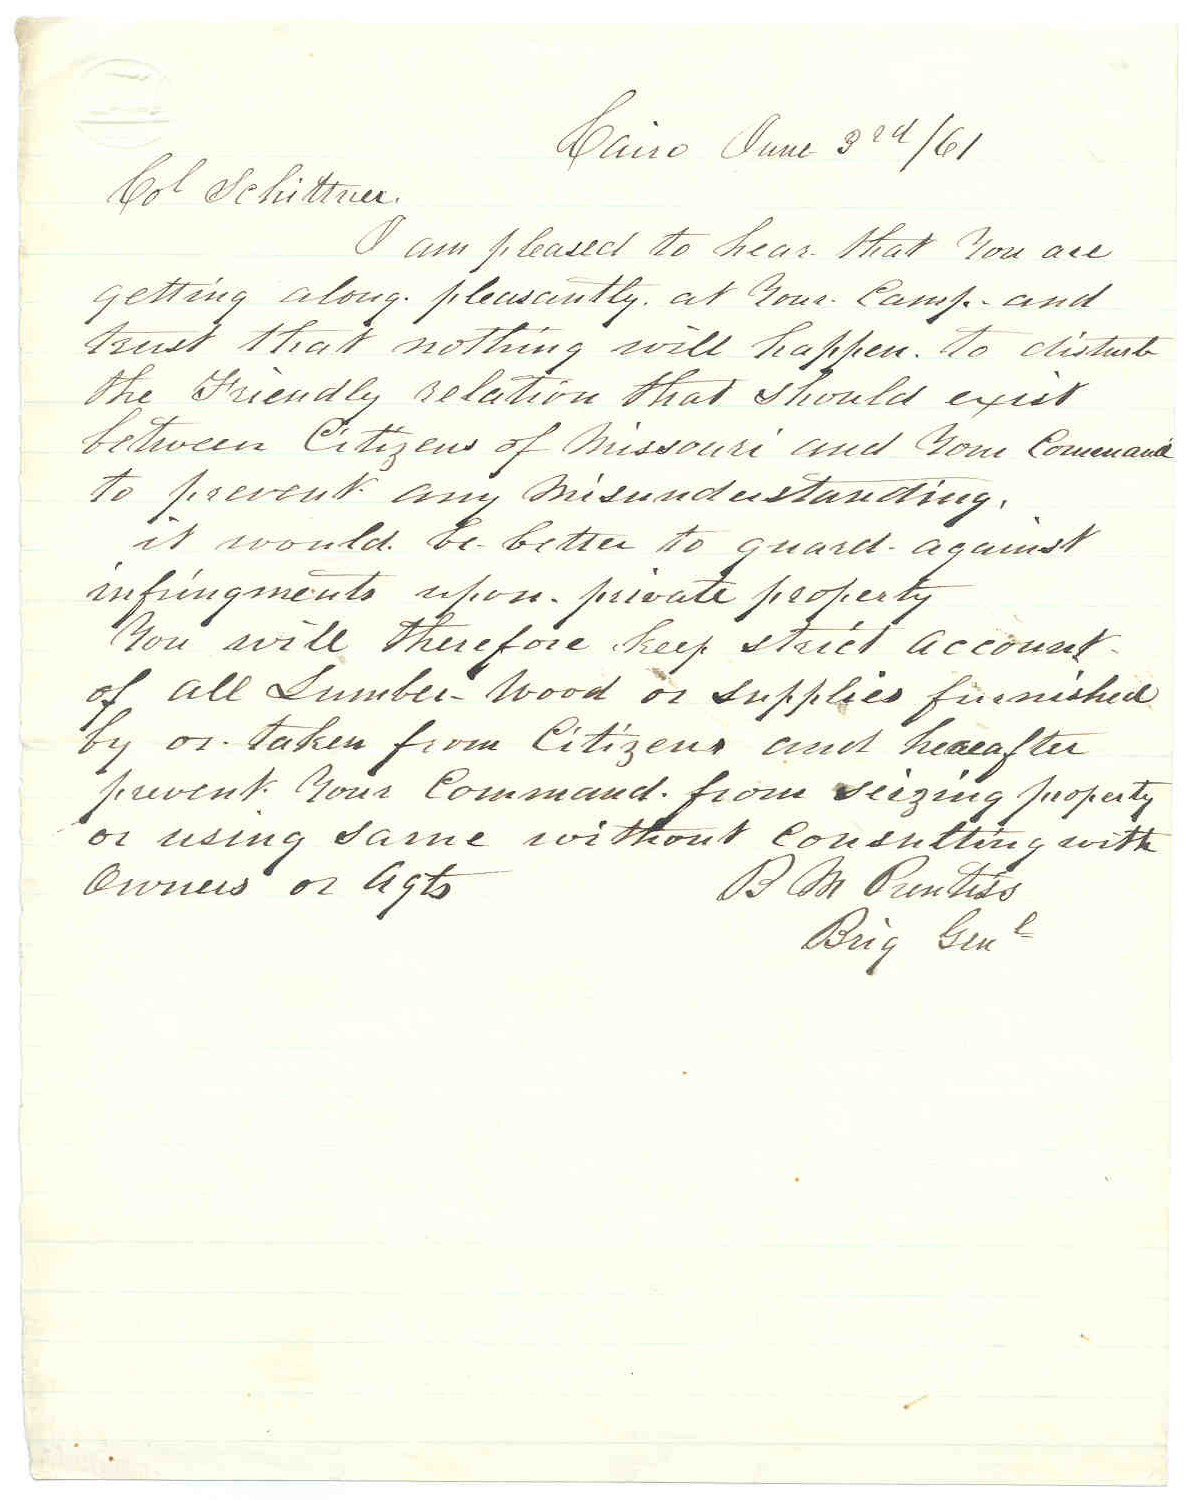 Cairo June 3rd/61
Col Schittner.
I am pleased to hear that You are
getting along pleasantly at Your Camp - and
trust that nothing will happen to disturb
the Friendly relation that should exist
between Citizens of Missouri and Your Command
to prevent any Misunderstanding.
it would be better to guard against
infringments upon private property
You will therefore keep strict account
of all Lumber - Wood or supplies furnished
by or taken from Citizens and hereafter
prevent Your Command from seizing property
or using same without Consulting with
Owners or Agts
B M Prentiss
Brig Genl